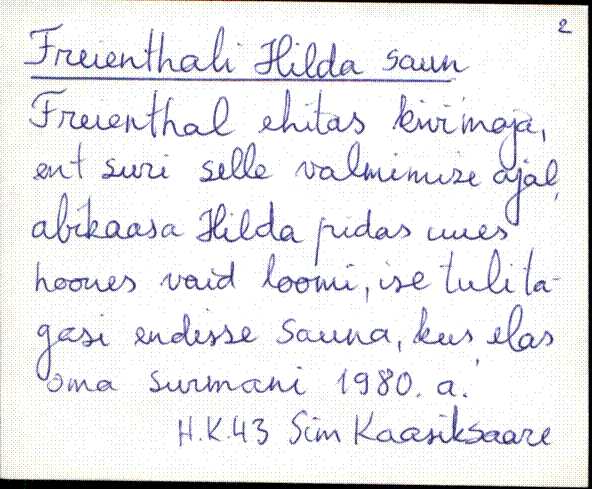 2
Freienthali Hilda saun
Freienthal ehitas kivimaja,
ent suri selle valmimise ajal,
abikaasa Hilda pidas uues
hoones vaid loomi, ise tuli ta-
gasi endisse sauna, kus elas
oma surmani 1980. a.
H.K.43 Sim Kaasiksaare